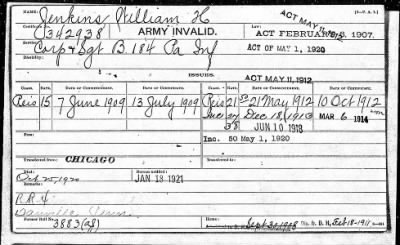 NAME: Jenkins William H
ACT MAY 11, 1912
342938 ARMY INVALID. ACT FEBRUARY 6, 1907.
Corp & Sgt B. 184 Pa Inf ACT OF MAY 1, 1920
Service:
Disability:
ISSUES.
ACT MAY 11, 1912
Class. Rate. Date of Commencement. Date of Certificate. Class. Rate. Date of Commencement. Date of Certificate.
Reis 15 7 June 1909 13 July 1909 Reis 21 50 21 May 1912 10 Oct 1912
Inc 27 Dec 18, 1913 MAR 6 1914
38 JUN 10 1918
Inc. 50 May 1, 1920
Transferred from CHICAGO
Died Oct 25, 1920 Bureau notified JAN 18 1921
R.R. 4.
Danville, Penn.
Former Roll No. 3883 Home: Sept 30 1908 Feb 18-1911